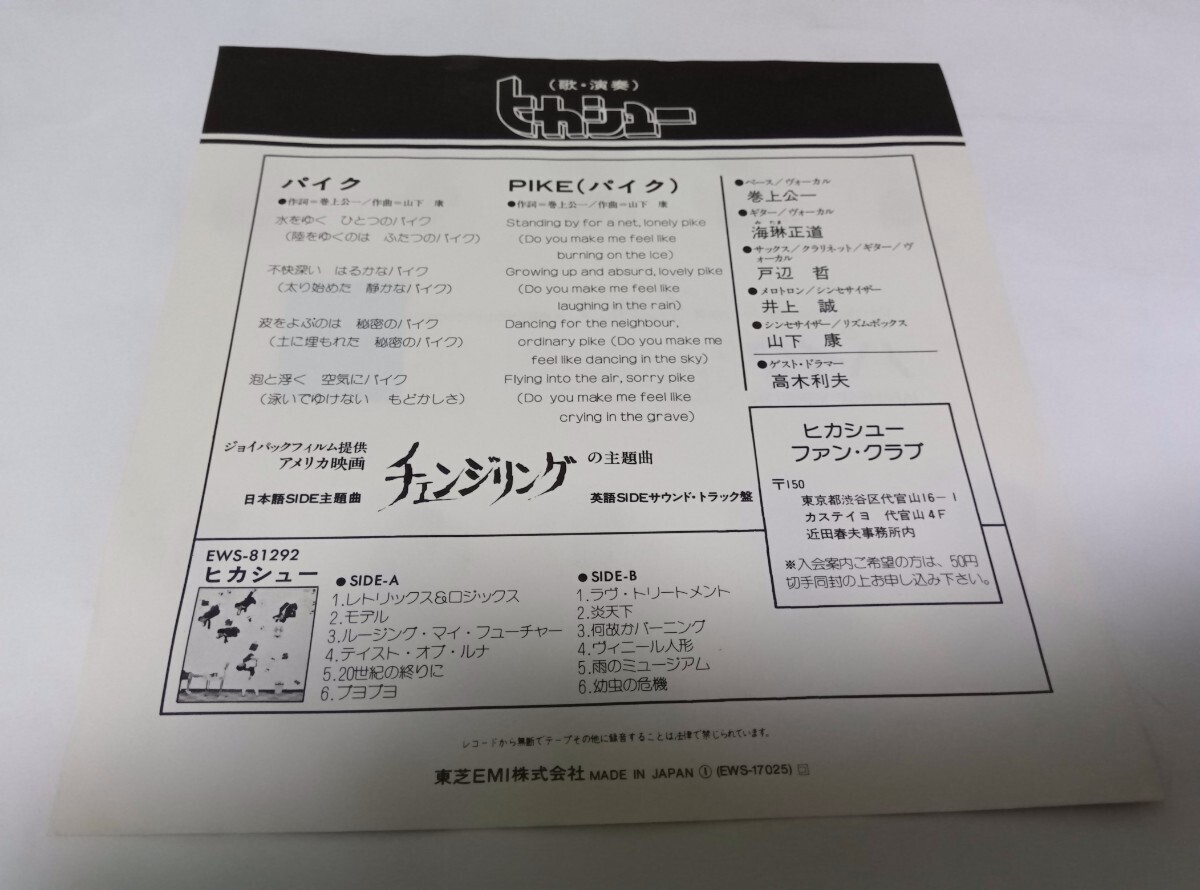 (歌・演奏)
ヒカシュー
パイク
●作詞＝巻上公一／作曲＝山下　康
水をゆく　ひとつのパイク
(陸をゆくのは　ふたつのパイク)
不快深い　はるかなパイク
(太り始めた　静かなパイク)
波をよぶのは　秘密のパイク
(土に埋もれた　秘密のパイク)
泡と浮く　空気にパイク
(泳いでゆけない　もどかしさ)
PIKE(パイク)
●作詞＝巻上公一／作曲＝山下　康
Standing by for a net, lonely pike
(Do you make me feel like
burning on the ice)
Growing up and absurd, lovely pike
(Do you make me feel like
laughing in the rain)
Dancing for the neighbour,
ordinary pike (Do you make me
feel like dancing in the sky)
Flying into the air, sorry pike
(Do you make me feel like
crying in the grave)
●ベース／ヴォーカル
巻上公一
●ギター／ヴォーカル
海琳正道
●サックス／クラリネット／ギター／ヴ
ォーカル
戸辺　哲
●メロトロン／シンセサイザー
井上　誠
●シンセサイザー／リズムボックス
山下　康
●ゲスト・ドラマー
高木利夫
ジョイパックフィルム提供
アメリカ映画
チェンジリング
の主題曲
日本語SIDE主題曲
英語SIDEサウンド・トラック盤
ヒカシュー
ファン・クラブ
〒150
東京都渋谷区代官山16－1
カステイヨ　代官山4F
近田春夫事務所内
※入会案内ご希望の方は、50円
切手同封の上お申し込み下さい。
EWS-81292
ヒカシュー
●SIDE-A
1.レトリックス&ロジックス
2.モデル
3.ルージング・マイ・フューチャー
4.テイスト・オブ・ルナ
5.20世紀の終りに
6.プヨプヨ
●SIDE-B
1.ラヴ・トリートメント
2.炎天下
3.何故かバーニング
4.ヴィニール人形
5.雨のミュージアム
6.幼虫の危機
レコードから無断でテープその他に録音することは法律で禁じられています。
東芝EMI株式会社 MADE IN JAPAN ① (EWS-17025)